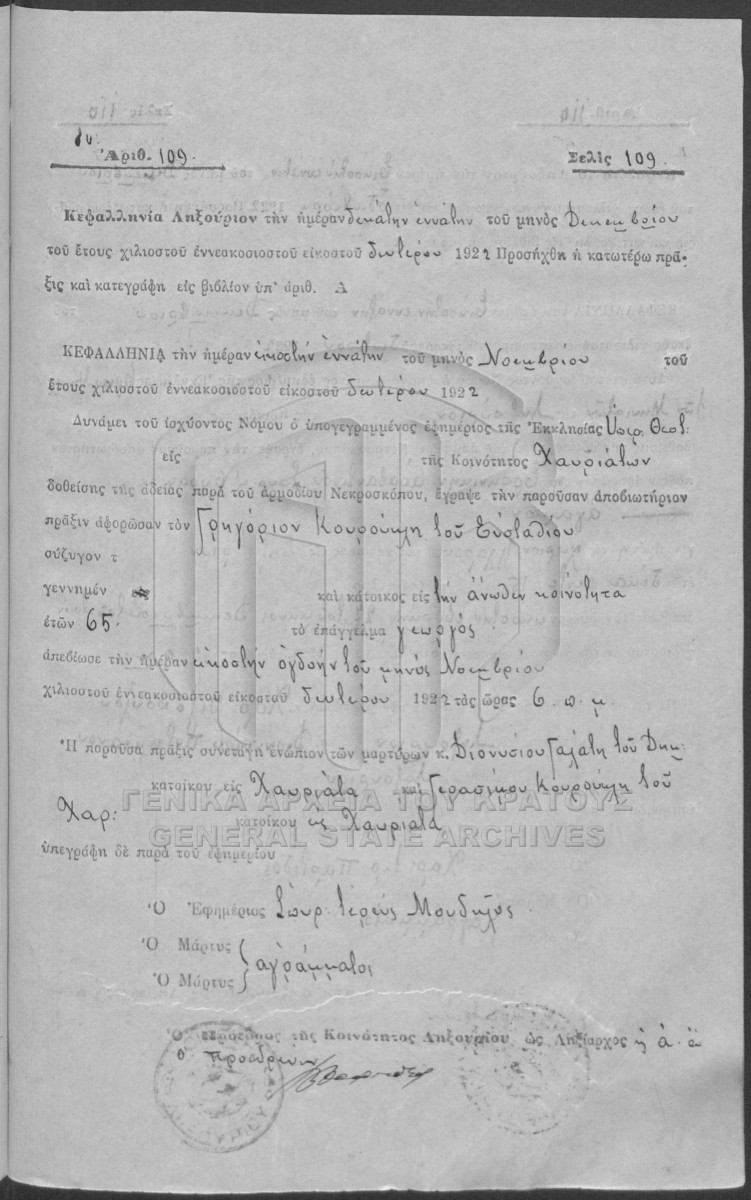 Ἀριθ. 109.
Σελὶς 109.
Κεφαλληνία Ληξούριον τὴν ἡμέραν δεκάτην ἐννάτην τοῦ μηνὸς Δεκεμβρίου
τοῦ ἔτους χιλιοστοῦ ἐννεακοσιοστοῦ εἰκοστοῦ δευτέρου 1922 Προσήχθη ἡ κατωτέρω πρᾶ-
ξις καὶ κατεγράφη εἰς βιβλίον ὑπ' ἀριθ. Α
ΚΕΦΑΛΛΗΝΙΑ τὴν ἡμέραν εἰκοστὴν ἐννάτην τοῦ μηνὸς Νοεμβρίου τοῦ
ἔτους χιλιοστοῦ ἐννεακοσιοστοῦ εἰκοστοῦ δευτέρου 1922
Δυνάμει τοῦ ἰσχύοντος Νόμου ὁ ὑπογεγραμμένος ἐφημέριος τῆς Ἐκκλησίας Ὑπερ. Θεοτ:
εἰς τῆς Κοινότητος Χαυριάτων
δοθείσης τῆς ἀδείας παρὰ τοῦ ἁρμοδίου Νεκροσκόπου, ἔγραψε τὴν παροῦσαν ἀποβιωτήριον
πρᾶξιν ἀφορῶσαν τὸν Γρηγόριον Κουρούκλη τοῦ Εὐσταθίου
σύζυγον τ
γεννημέν καὶ κάτοικος εἰς τὴν ἄνωθεν κοινότητα
ἐτῶν 65. τὸ ἐπάγγελμα γεωργός.
ἀπεβίωσε τὴν ἡμέραν εἰκοστὴν ὀγδοὴν τοῦ μηνὸς Νοεμβρίου
χιλιοστοῦ ἐννεακοσιοστοῦ εἰκοστοῦ δευτέρου 1922 τὰς ὥρας 6. π. μ.
Ἡ παροῦσα πρᾶξις συνετάγη ἐνώπιον τῶν μαρτύρων κ. Διονυσίου Γαλάτη τοῦ Δημ:
κατοίκου εἰς Χαυριᾶτα καὶ Γερασίμου Κουρούκλη τοῦ
Χαρ: κατοίκου εἰς Χαυριατα
ΓΕΝΙΚΑ ΑΡΧΕΙΑ ΤΟΥ ΚΡΑΤΟΥΣ
GENERAL STATE ARCHIVES
ὑπεγράφη δὲ παρὰ τοῦ ἐφημερίου
Ὁ Ἐφημέριος Σπυρ. ἱερεὺς
Ὁ Μάρτυς
ἀγράμματοι
Ὁ Μάρτυς
Ὁ Πρόεδρος τῆς Κοινότητος Ληξουρίου ὡς Ληξίαρχος
ὁ προεδρεύων